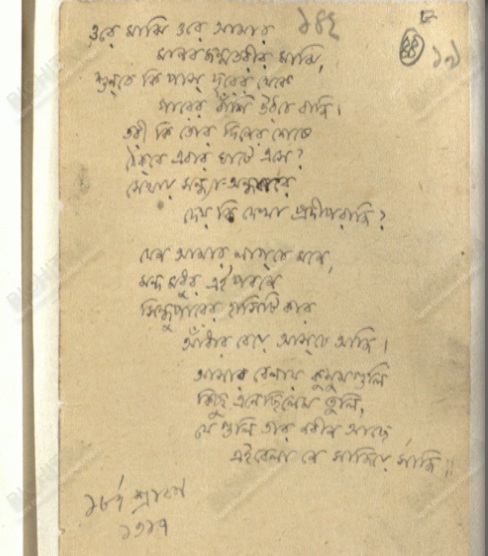 ১৪২
৪৪ ১৯
ওরে মাঝি ওরে আমার
মানবজন্মতরীর মাঝি,
শুনতে কি পাস্ দূরের থেকে
পারের বাঁশি উঠচে বাজি।
তরী কি তোর দিনের শেষে
ঠেকবে এবার ঘাটে এসে?
সেথায় সন্ধ্যা অন্ধকারে
দেয় কি দেখা প্রদীপরাজি?
যেন আমার লাগচে মনে,
মন্দ মধুর এই পবনে
সিন্ধুপারের হাসিটি কার
আঁধার বেয়ে আসচে আজি।
আসার বেলায় কুসুমগুলি
কিছু এনেছিলেম তুলি,
যে গুলি তার নবীন আছে
এইবেলা নে সাজিয়ে সাজি॥
১৮ই শ্রাবণ
১৩১৭